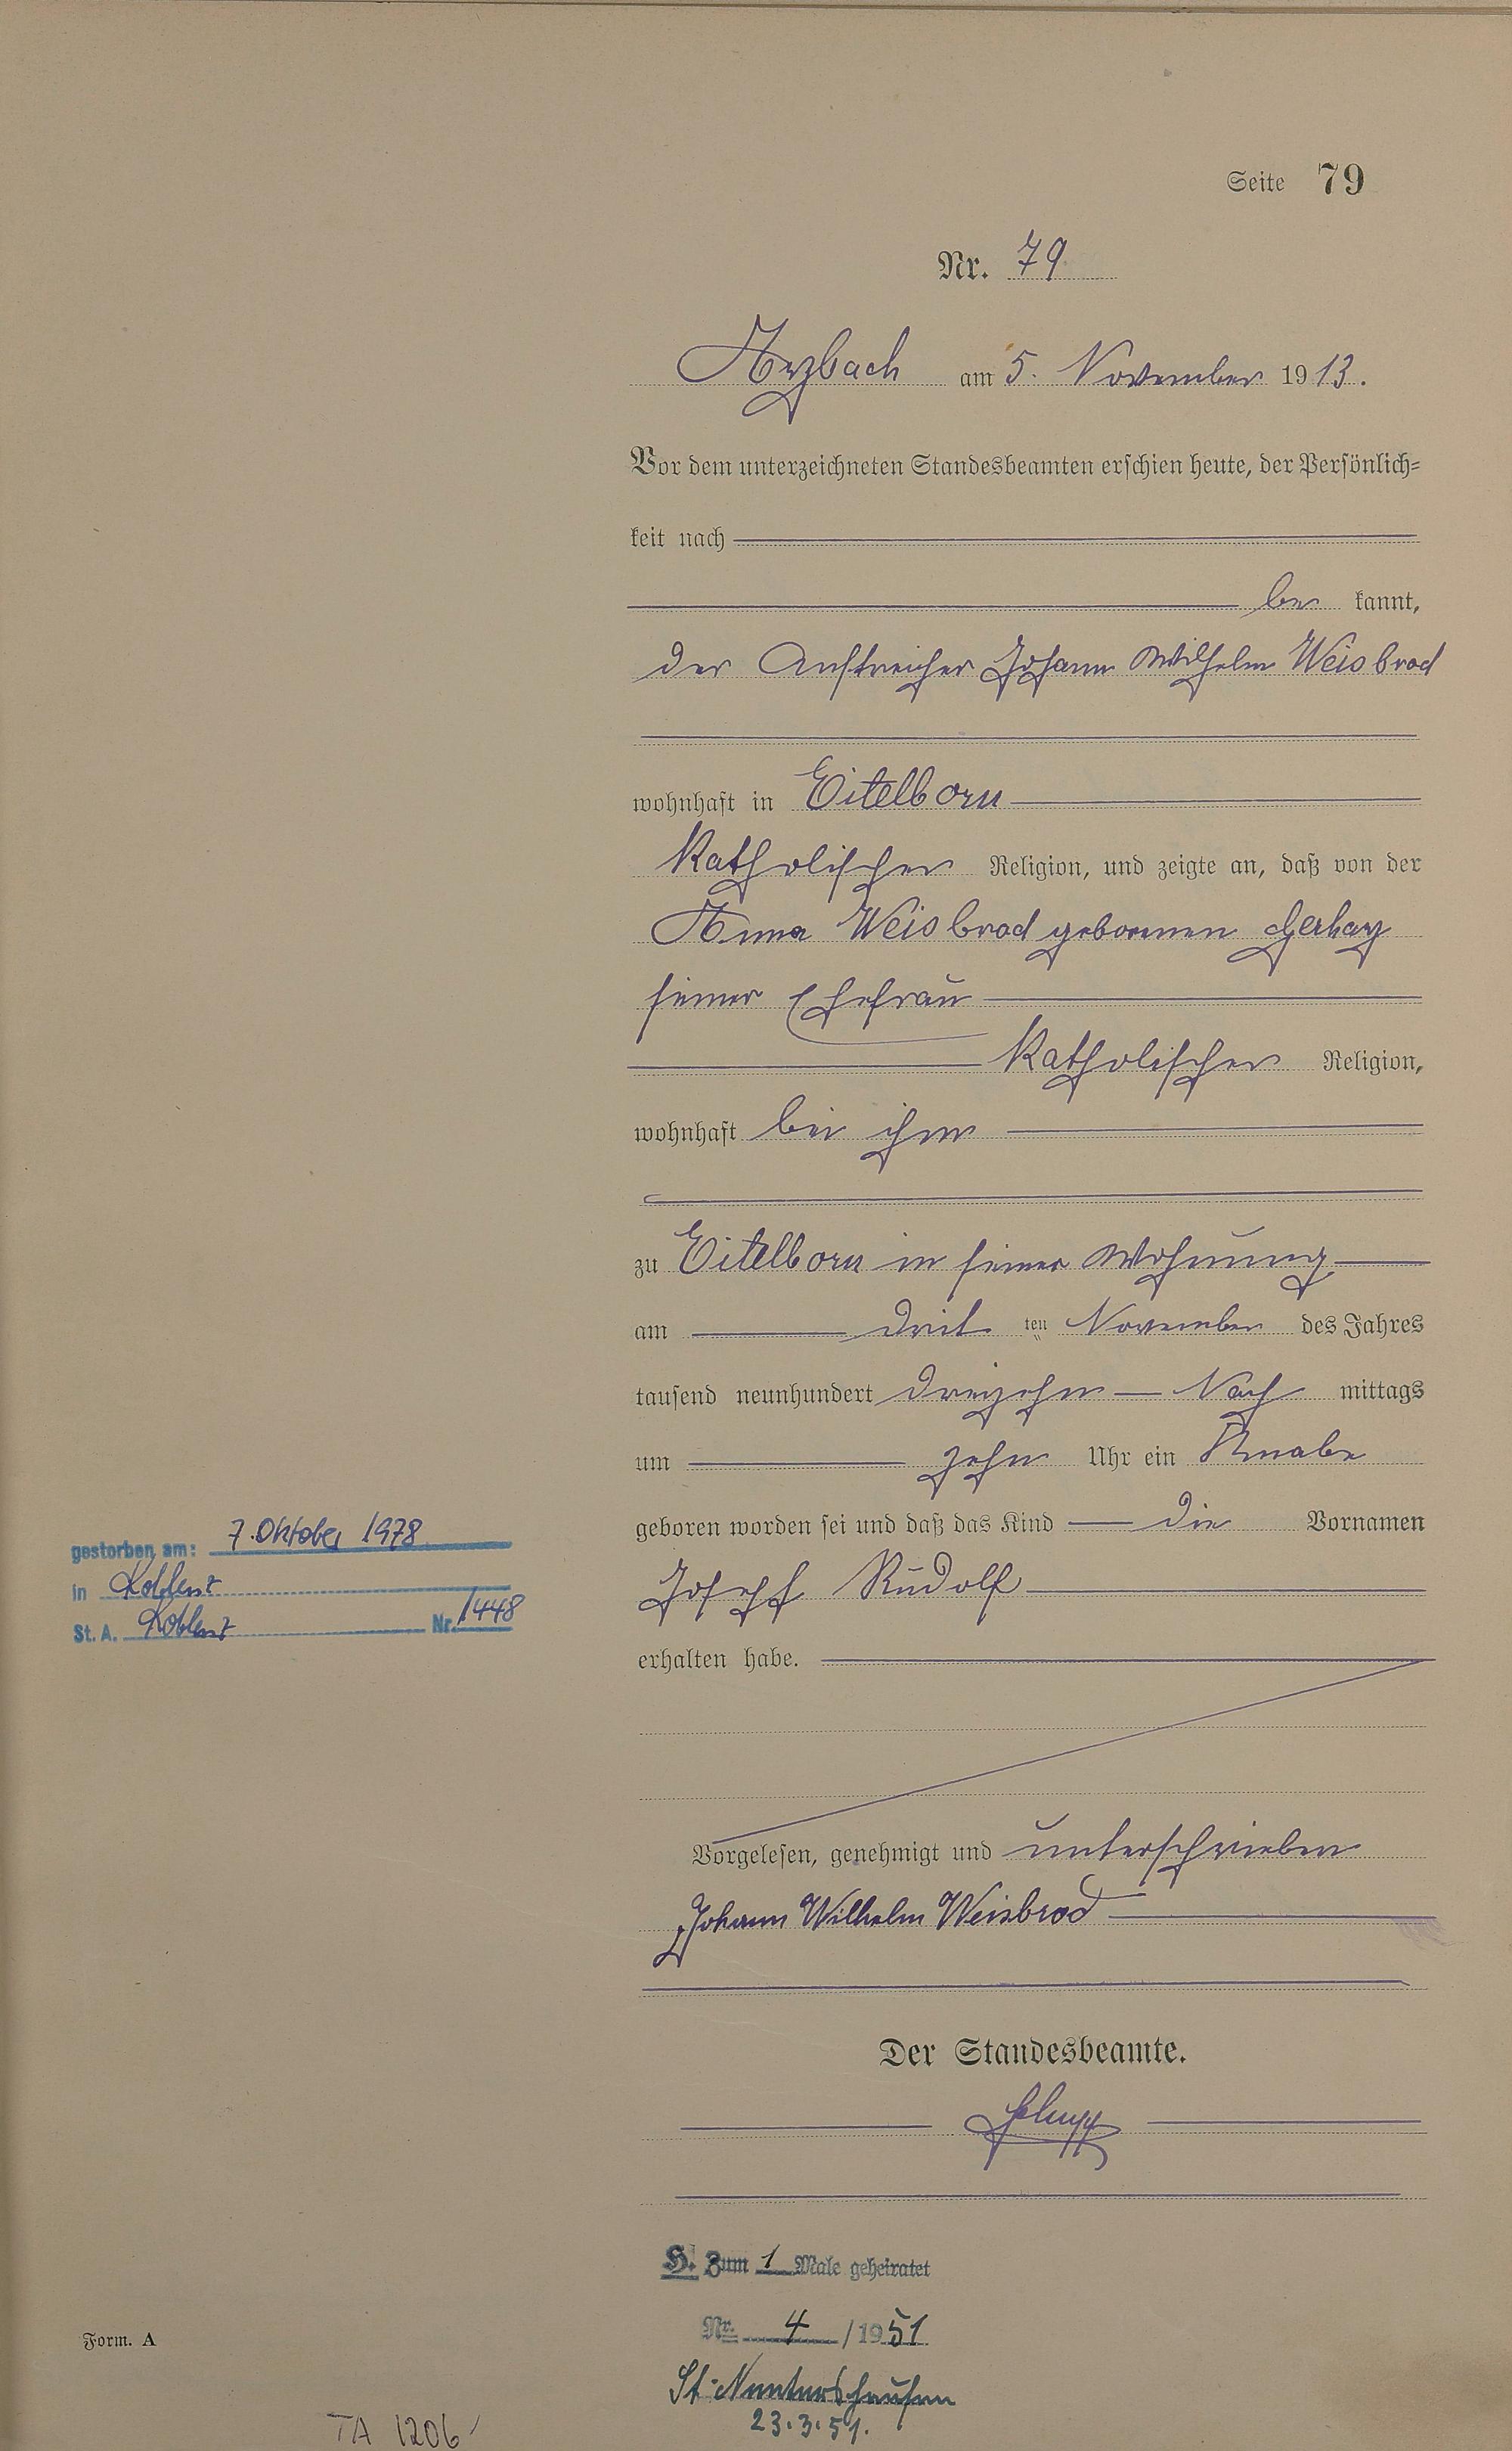 Seite 79
Nr. 79
Arzbach am 5. November 1913.
Vor dem unterzeichneten Standesbeamten erschien heute, der Persönlich=
keit nach
be kannt,
der Anstreicher Johann Wilhelm Weisbrod
wohnhaft in Eitelborn
katholischer Religion, und zeigte an, daß von der
Anna Weisbrod geborenen Gerharz
seiner Ehefrau
katholischer Religion,
wohnhaft bei ihm
zu Eitelborn in seiner Wohnung
am drit ten November des Jahres
tausend neunhundert dreizehn Nach mittags
um zehn Uhr ein Knabe
geboren worden sei und daß das Kind die Vornamen
Joseph Rudolf
erhalten habe.
gestorben am: 7. Oktober 1978
in Koblenz
St. A. Koblenz Nr. 1448
Vorgelesen, genehmigt und unterschrieben
Johann Wilhelm Weisbrod
Der Standesbeamte.
H. Zum 1 Male geheiratet
Nr. 4 / 1951
St. Nentershausen
23.3.51.
Form. A
TA 1206